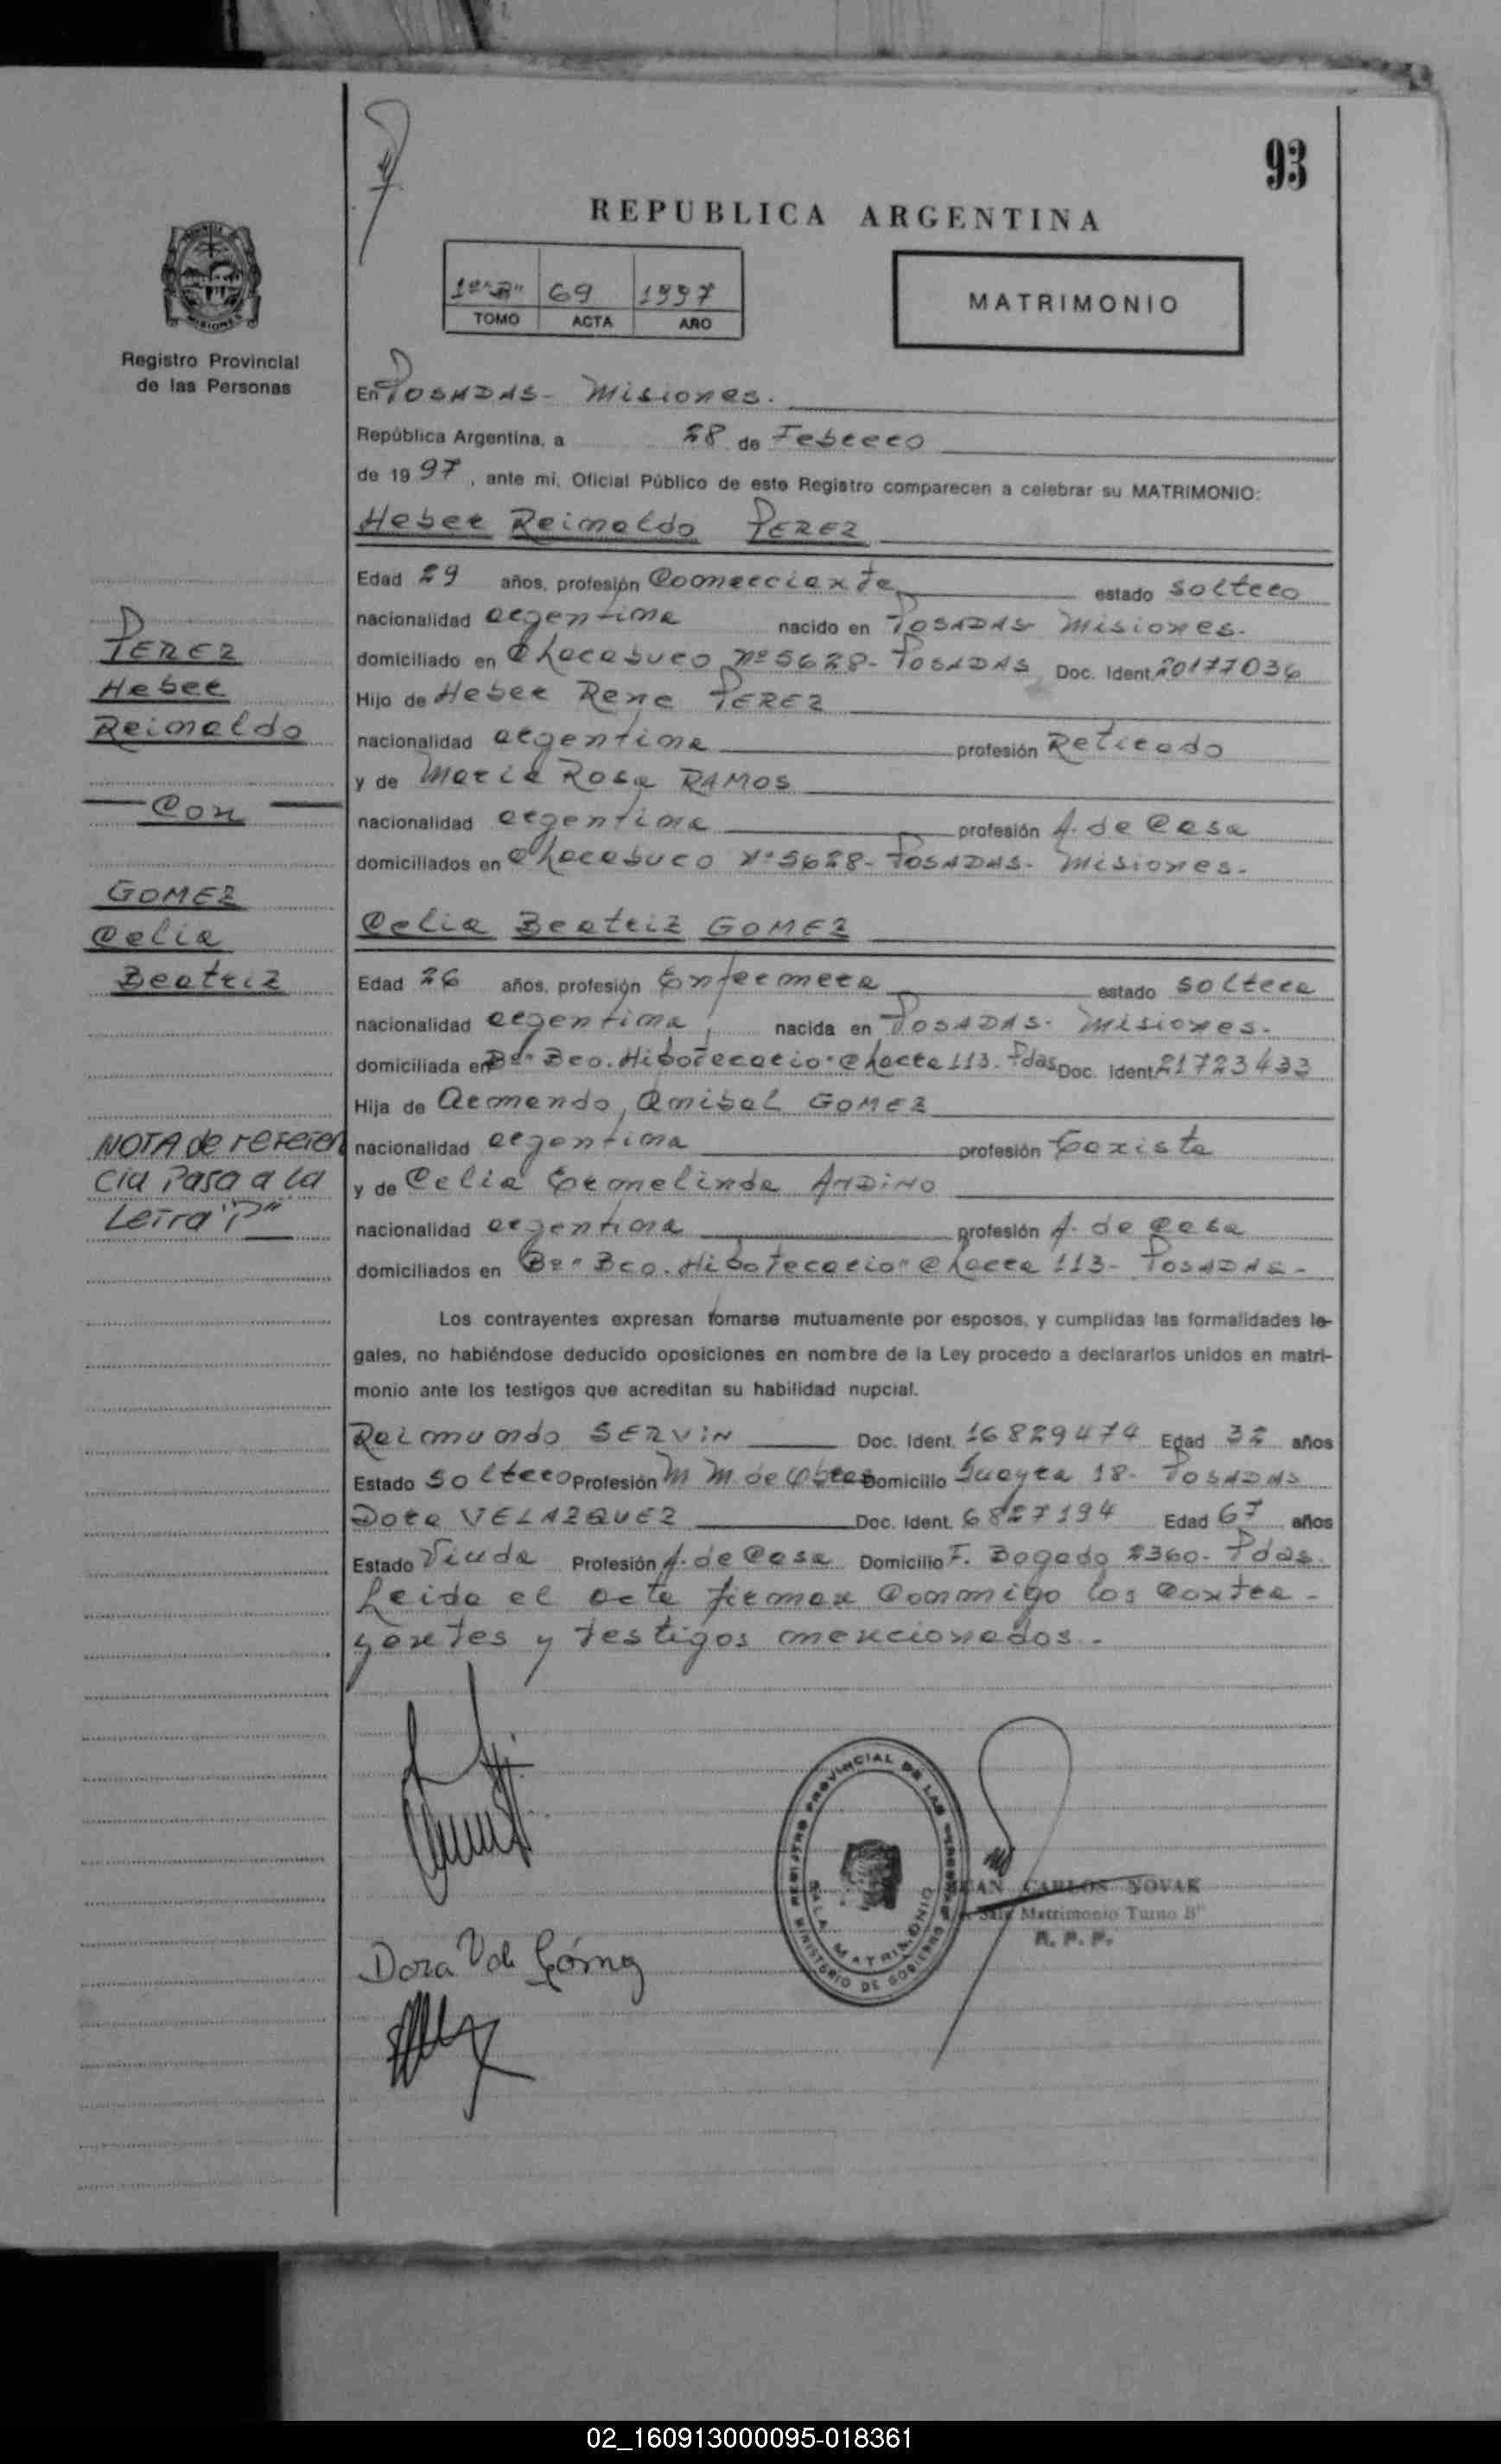 93
REPUBLICA ARGENTINA
1º "B" 69 1997
TOMO ACTA AÑO
MATRIMONIO
MISIONES
Registro Provincial
de las Personas
En POSADAS - Misiones.
República Argentina, a 28 de Febrero
de 1997, ante mi, Oficial Público de este Registro comparecen a celebrar su MATRIMONIO:
Heber Reinaldo PEREZ
Edad 29 años, profesión Comerciante estado soltero
nacionalidad argentina nacido en POSADAS Misiones.
domiciliado en Chacabuco nº 5628 - POSADAS Doc. Ident. 20177036
Hijo de Heber Rene PEREZ
nacionalidad argentina profesión Retirado
y de Maria Rosa RAMOS
nacionalidad argentina profesión A. de Casa
domiciliados en Chacabuco Nº 5628 - POSADAS - Misiones.
PEREZ
Heber
Reinaldo
Con
GOMEZ
Celia
Beatriz
Celia Beatriz GOMEZ
Edad 26 años, profesión Enfermera estado soltera
nacionalidad argentina nacida en POSADAS - Misiones.
domiciliada en Bº " Bco. Hipotecario " Chacra 113 - Pdas Doc. Ident. 21723433
Hija de Armando, Anibal GOMEZ
nacionalidad argentina profesión Taxista
y de Celia Ermelinda ANDINO
nacionalidad argentina profesión A. de Casa
domiciliados en Bº " Bco. Hipotecario " Chacra 113 - POSADAS -
NOTA de referen
cia Pasa a la
Letra "P"
Los contrayentes expresan tomarse mutuamente por esposos, y cumplidas las formalidades le-
gales, no habiéndose deducido oposiciones en nombre de la Ley procedo a declararlos unidos en matri-
monio ante los testigos que acreditan su habilidad nupcial.
Raimundo SERVIN Doc. Ident. 16829474 Edad 32 años
Estado soltero Profesión M M de Obras Domicilio 18 - POSADAS
Dora VELAZQUEZ Doc. Ident. 6827194 Edad 67 años
Estado Viuda Profesión A. de Casa Domicilio F. Bogado 2360 - Pdas.
Leida el acta firman conmigo los contra -
yentes y testigos mencionados -
REGISTRO PROVINCIAL DE LAS PERSONAS
SALA MATRIMONIO
MINISTERIO DE GOBIERNO
JUAN CARLOS NOVAK
Sala Matrimonio Turno B"
R. P. P.
Dora V de Gómez
02_160913000095-018361